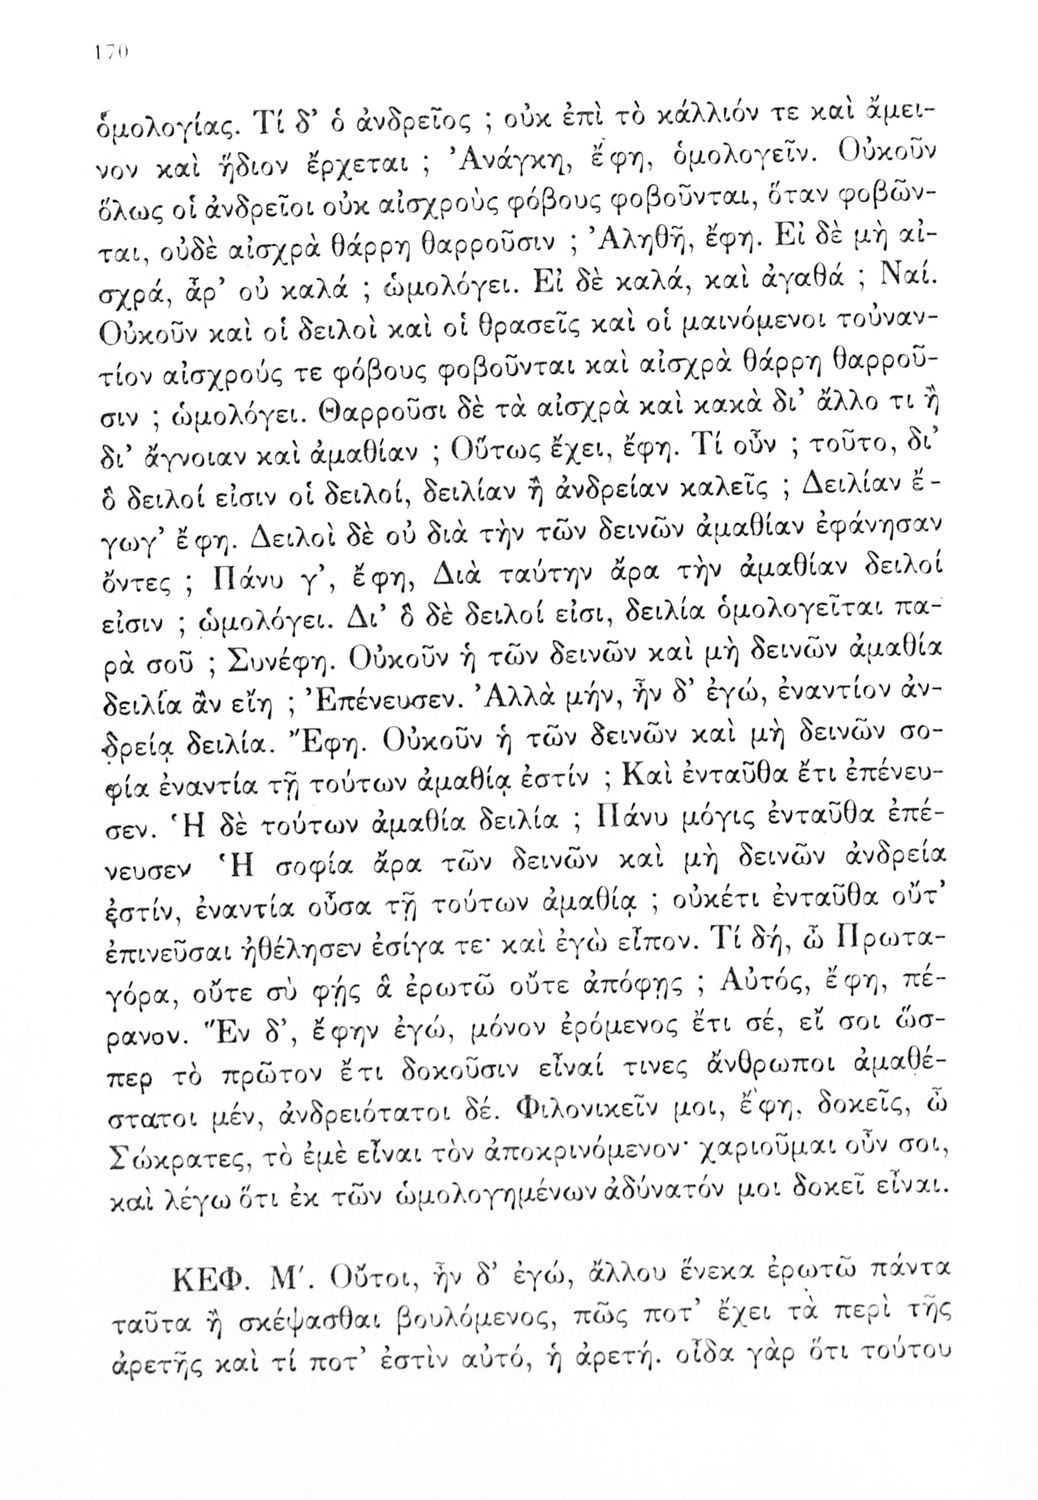 170
ὁμολογίας. Τί δ’ ὁ ἀνδρεῖος ; οὐκ ἐπὶ τὸ κάλλιόν τε καὶ ἄμει-
νον καὶ ἥδιον ἔρχεται ; ’Ανάγκη, ἔφη, ὁμολογεῖν. Οὐκοῦν
ὅλως οἱ ἀνδρεῖοι οὐκ αἰσχροὺς φόβους φοβοῦνται, ὅταν φοβῶν-
ται, οὐδὲ αἰσχρὰ θάρρη θαρροῦσιν ; ’Αληθῆ, ἔφη. Εἰ δὲ μὴ αἰ-
σχρά, ἆρ’ οὐ καλά ; ὡμολόγει. Εἰ δὲ καλά, καὶ ἀγαθά ; Ναί.
Οὐκοῦν καὶ οἱ δειλοὶ καὶ οἱ θρασεῖς καὶ οἱ μαινόμενοι τοὐναν-
τίον αἰσχρούς τε φόβους φοβοῦνται καὶ αἰσχρὰ θάρρη θαρροῦ-
σιν ; ὡμολόγει. Θαρροῦσι δὲ τὰ αἰσχρὰ καὶ κακὰ δι’ ἄλλο τι ἢ
δι’ ἄγνοιαν καὶ ἀμαθίαν ; Οὕτως ἔχει, ἔφη. Τί οὖν ; τοῦτο, δι’
ὃ δειλοί εἰσιν οἱ δειλοί, δειλίαν ἢ ἀνδρείαν καλεῖς ; Δειλίαν ἔ-
γωγ’ ἔφη. Δειλοὶ δὲ οὐ διὰ τὴν τῶν δεινῶν ἀμαθίαν ἐφάνησαν
ὄντες ; Πάνυ γ’, ἔφη, Διὰ ταύτην ἄρα τὴν ἀμαθίαν δειλοί
εἰσιν ; ὡμολόγει. Δι’ ὃ δὲ δειλοί εἰσι, δειλία ὁμολογεῖται πα-
ρὰ σοῦ ; Συνέφη. Οὐκοῦν ἡ τῶν δεινῶν καὶ μὴ δεινῶν ἀμαθία
δειλία ἂν εἴη ; ’Επένευσεν. ’Αλλὰ μήν, ἦν δ’ ἐγώ, ἐναντίον ἀν-
δρείᾳ δειλία. Ἔφη. Οὐκοῦν ἡ τῶν δεινῶν καὶ μὴ δεινῶν σο-
φία ἐναντία τῇ τούτων ἀμαθίᾳ ἐστίν ; Καὶ ἐνταῦθα ἔτι ἐπένευ-
σεν. Ἡ δὲ τούτων ἀμαθία δειλία ; Πάνυ μόγις ἐνταῦθα ἐπέ-
νευσεν Ἡ σοφία ἄρα τῶν δεινῶν καὶ μὴ δεινῶν ἀνδρεία
ἐστίν, ἐναντία οὖσα τῇ τούτων ἀμαθίᾳ ; οὐκέτι ἐνταῦθα οὔτ’
ἐπινεῦσαι ἠθέλησεν ἐσίγα τε· καὶ ἐγὼ εἶπον. Τί δή, ὦ Πρωτα-
γόρα, οὔτε σὺ φῄς ἃ ἐρωτῶ οὔτε ἀπόφῃς ; Αὐτός, ἔφη, πέ-
ρανον. Ἕν δ’, ἔφην ἐγώ, μόνον ἐρόμενος ἔτι σέ, εἴ σοι ὥσ-
περ τὸ πρῶτον ἔτι δοκοῦσιν εἶναί τινες ἄνθρωποι ἀμαθέ-
στατοι μέν, ἀνδρειότατοι δέ. Φιλονικεῖν μοι, ἔφη, δοκεῖς, ὦ
Σώκρατες, τὸ ἐμὲ εἶναι τὸν ἀποκρινόμενον· χαριοῦμαι οὖν σοι,
καὶ λέγω ὅτι ἐκ τῶν ὡμολογημένων ἀδύνατόν μοι δοκεῖ εἶναι.
ΚΕΦ. Μ′. Οὔτοι, ἦν δ’ ἐγώ, ἄλλου ἕνεκα ἐρωτῶ πάντα
ταῦτα ἢ σκέψασθαι βουλόμενος, πῶς ποτ’ ἔχει τὰ περὶ τῆς
ἀρετῆς καὶ τί ποτ’ ἐστὶν αὐτό, ἡ ἀρετή. οἶδα γὰρ ὅτι τούτου